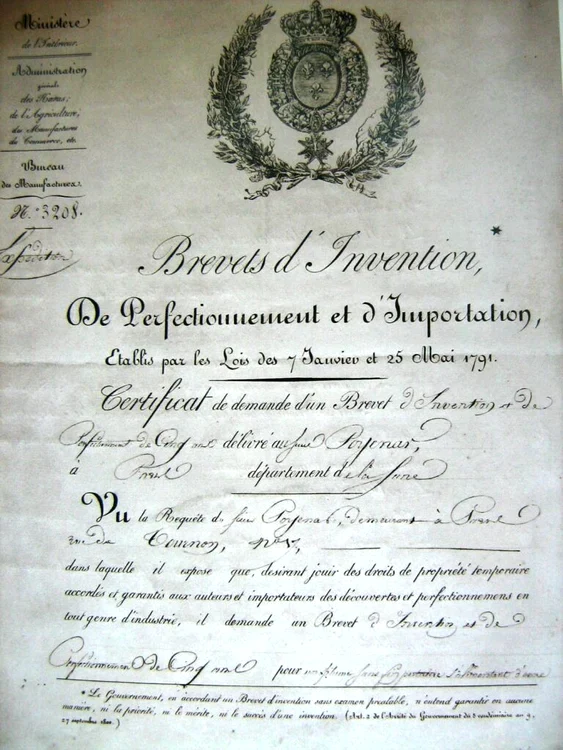 Ministère
de l'Intérieur.
Administration
générale
des Haras,
de l'Agriculture,
des Manufactures
du Commerce, etc.
Bureau
des Manufactures.
N.º 3208.
Expédition
Brevets d'Invention,*
De Perfectionnement et d'Importation,
Etablis par les Lois des 7 Janvier et 25 Mai 1791.
Certificat de demande d'un Brevet d'Invention et de
Perfectionnement de Cinq ans délivré au Sieur
à département de la Seine
Vu la Requête du Sieur demeurant à
rue de Tournon,
dans laquelle il expose que, desirant jouir des droits de propriété temporaire
accordés et garantis aux auteurs et importateurs des découvertes et perfectionnemens en
tout genre d'industrie, il demande un Brevet d'Invention et de
Perfectionnement de Cinq ans pour
* Le Gouvernement, en accordant un Brevet d'invention sans examen préalable, n'entend garantir en aucune
manière, ni la priorité, ni le mérite, ni le succès d'une invention. (Art. 2 de l'Arrêté du Gouvernement du 5 vendémiaire an 9,
27 septembre 1800.)